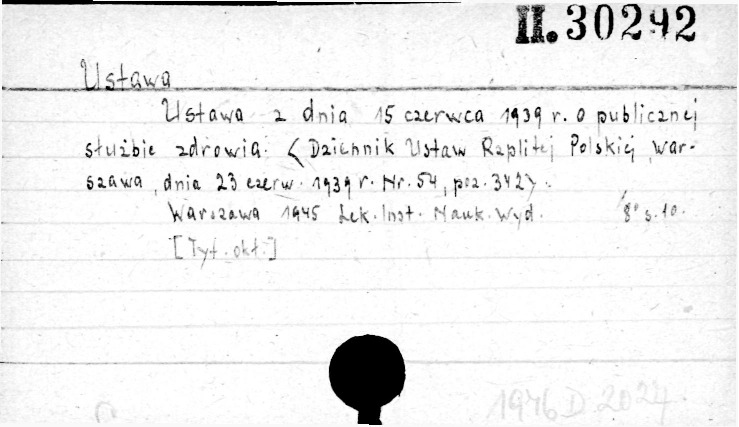 II. 30292
Ustawa
Ustawa z dnia 15 czerwca 1939 r. o publicznej
służbie zdrowia. <Dziennik Ustaw Rzplitej Polskiej, War-
szawa, dnia 23 czerw. 1939 r. Nr. 54, poz. 342>.
Warszawa 1945 Lek. Inst. Nauk. Wyd. 8° s. 10.
[Tyt. okł.]
1946 D 2024.